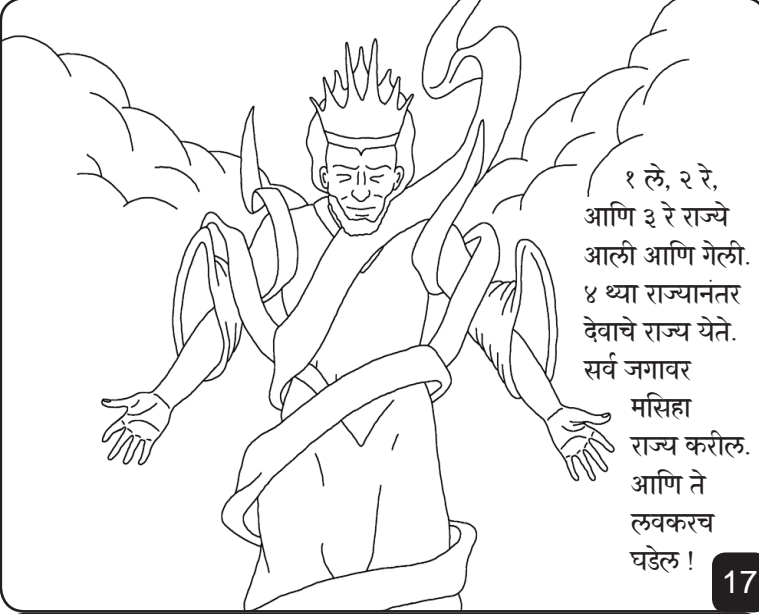 १ ले, २ रे,
आणि ३ रे राज्ये
आली आणि गेली.
४ थ्या राज्यानंतर
देवाचे राज्य येते.
सर्व जगावर
मसिहा
राज्य करील.
आणि ते
लवकरच
घडेल !
17